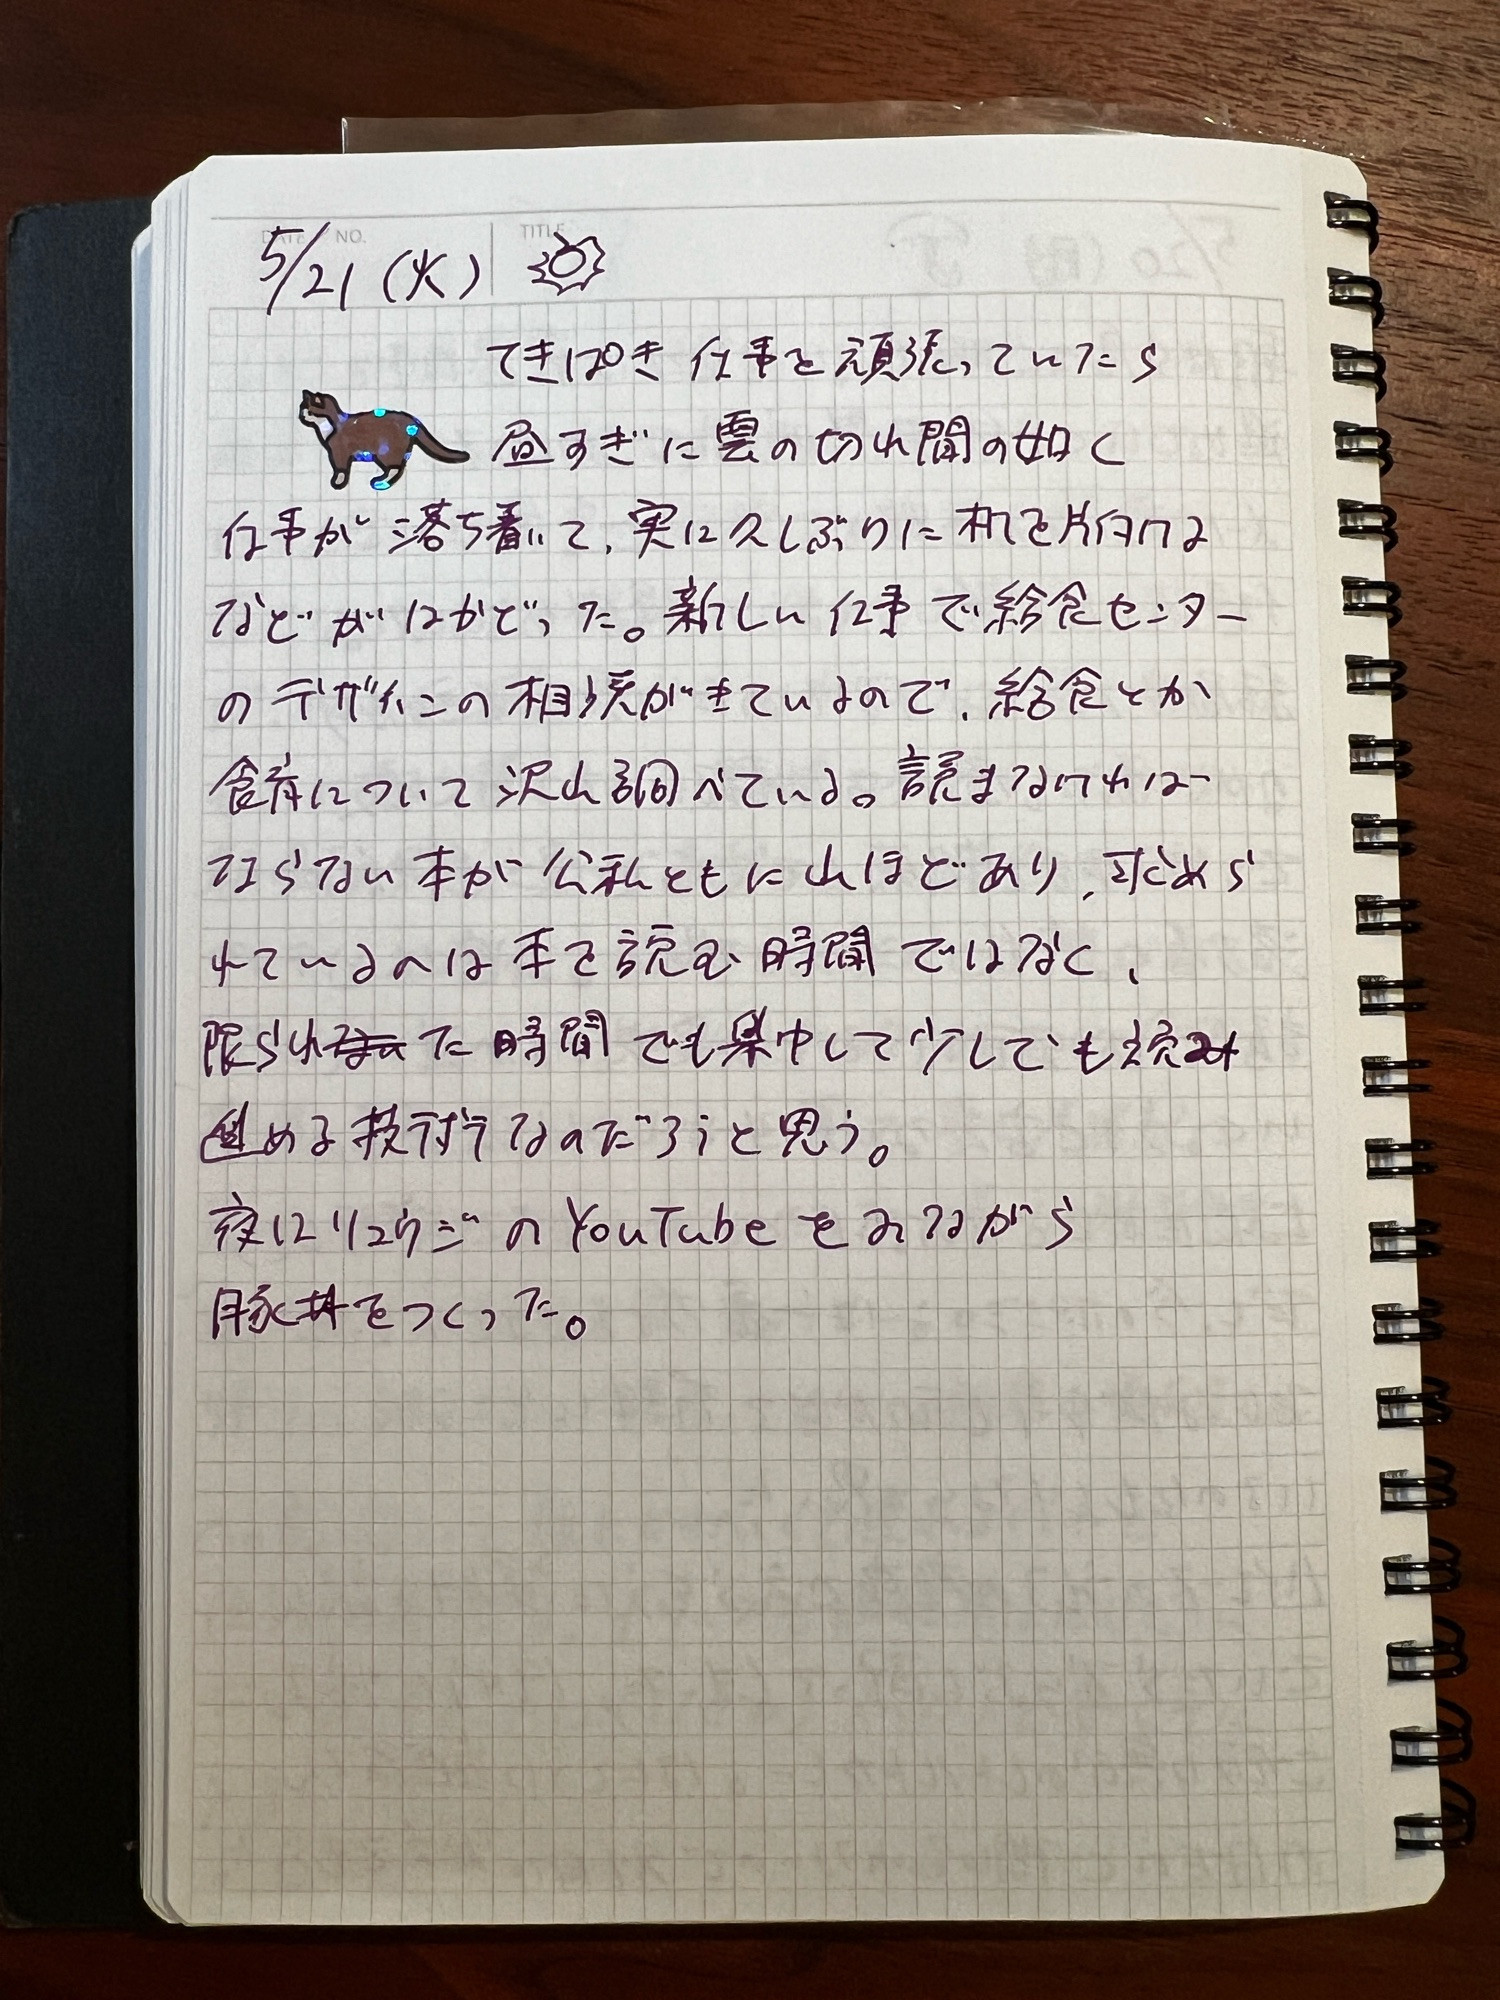 DATE / NO.
TITLE
5/21(火)
てきぱき仕事を頑張っていたら
昼すぎに雲の切れ間の如く
仕事が落ち着いて、実に久しぶりに机を片付ける
などがはかどった。新しい仕事で給食センター
のデザインの相談がきているので、給食とか
食育について沢山調べている。読まなければ
ならない本が公私ともに山ほどあり、求めら
れているのは本を読む時間ではなく、
限られた時間でも集中して少しでも読み
進める技術なのだろうと思う。
夜にリュウジのYouTubeをみながら
豚丼をつくった。